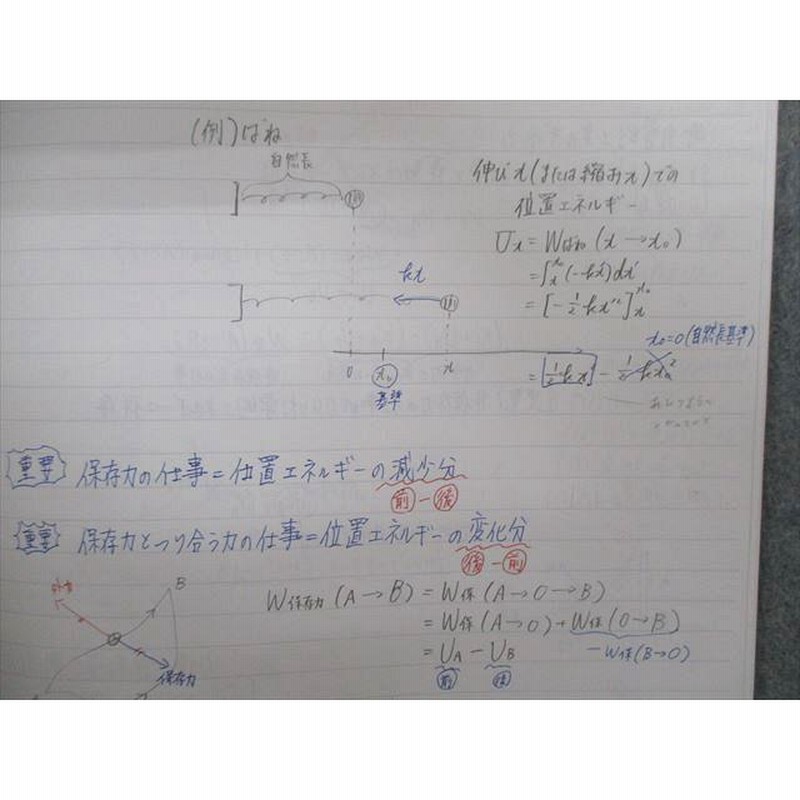 (例)ばね
自然長
伸びx(または縮みx)での
位置エネルギー
kx
Ux = Wばね (x→x₀)
= ∫ₓ^x₀ (-kx')dx'
= [-1/2 kx'²]ₓ^x₀
x₀=0(自然長基準)
= 1/2 kx² - 1/2 kx₀²
0 x₀ x
基準
重要 保存力の仕事=位置エネルギーの減少分
前-後
重要 保存力とつり合う力の仕事=位置エネルギーの変化分
後-前
外力
B
保存力
W保存力 (A→B) = W保 (A→O→B)
= W保 (A→O) + W保 (O→B)
= UA - UB
-W保(B→O)
前 後